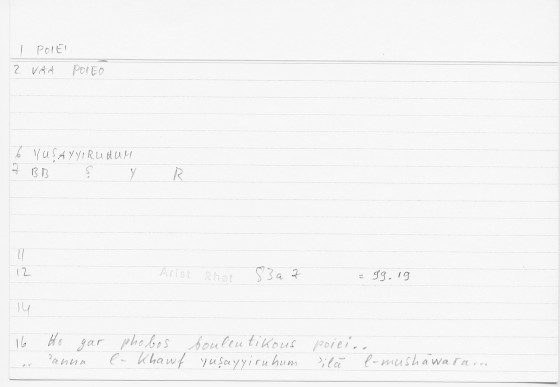 1 POIEI
2 VAA POIEO
6 YUṢAYYIRUHUM
7 BB Ṣ Y R
11
12 Arist Rhet 83a 7 = 99.19
14
16 Ho gar phobos bouleutikous poiei..
.. ʾanna l-khawf yuṣayyiruhum ʾilā l-mushāwara...